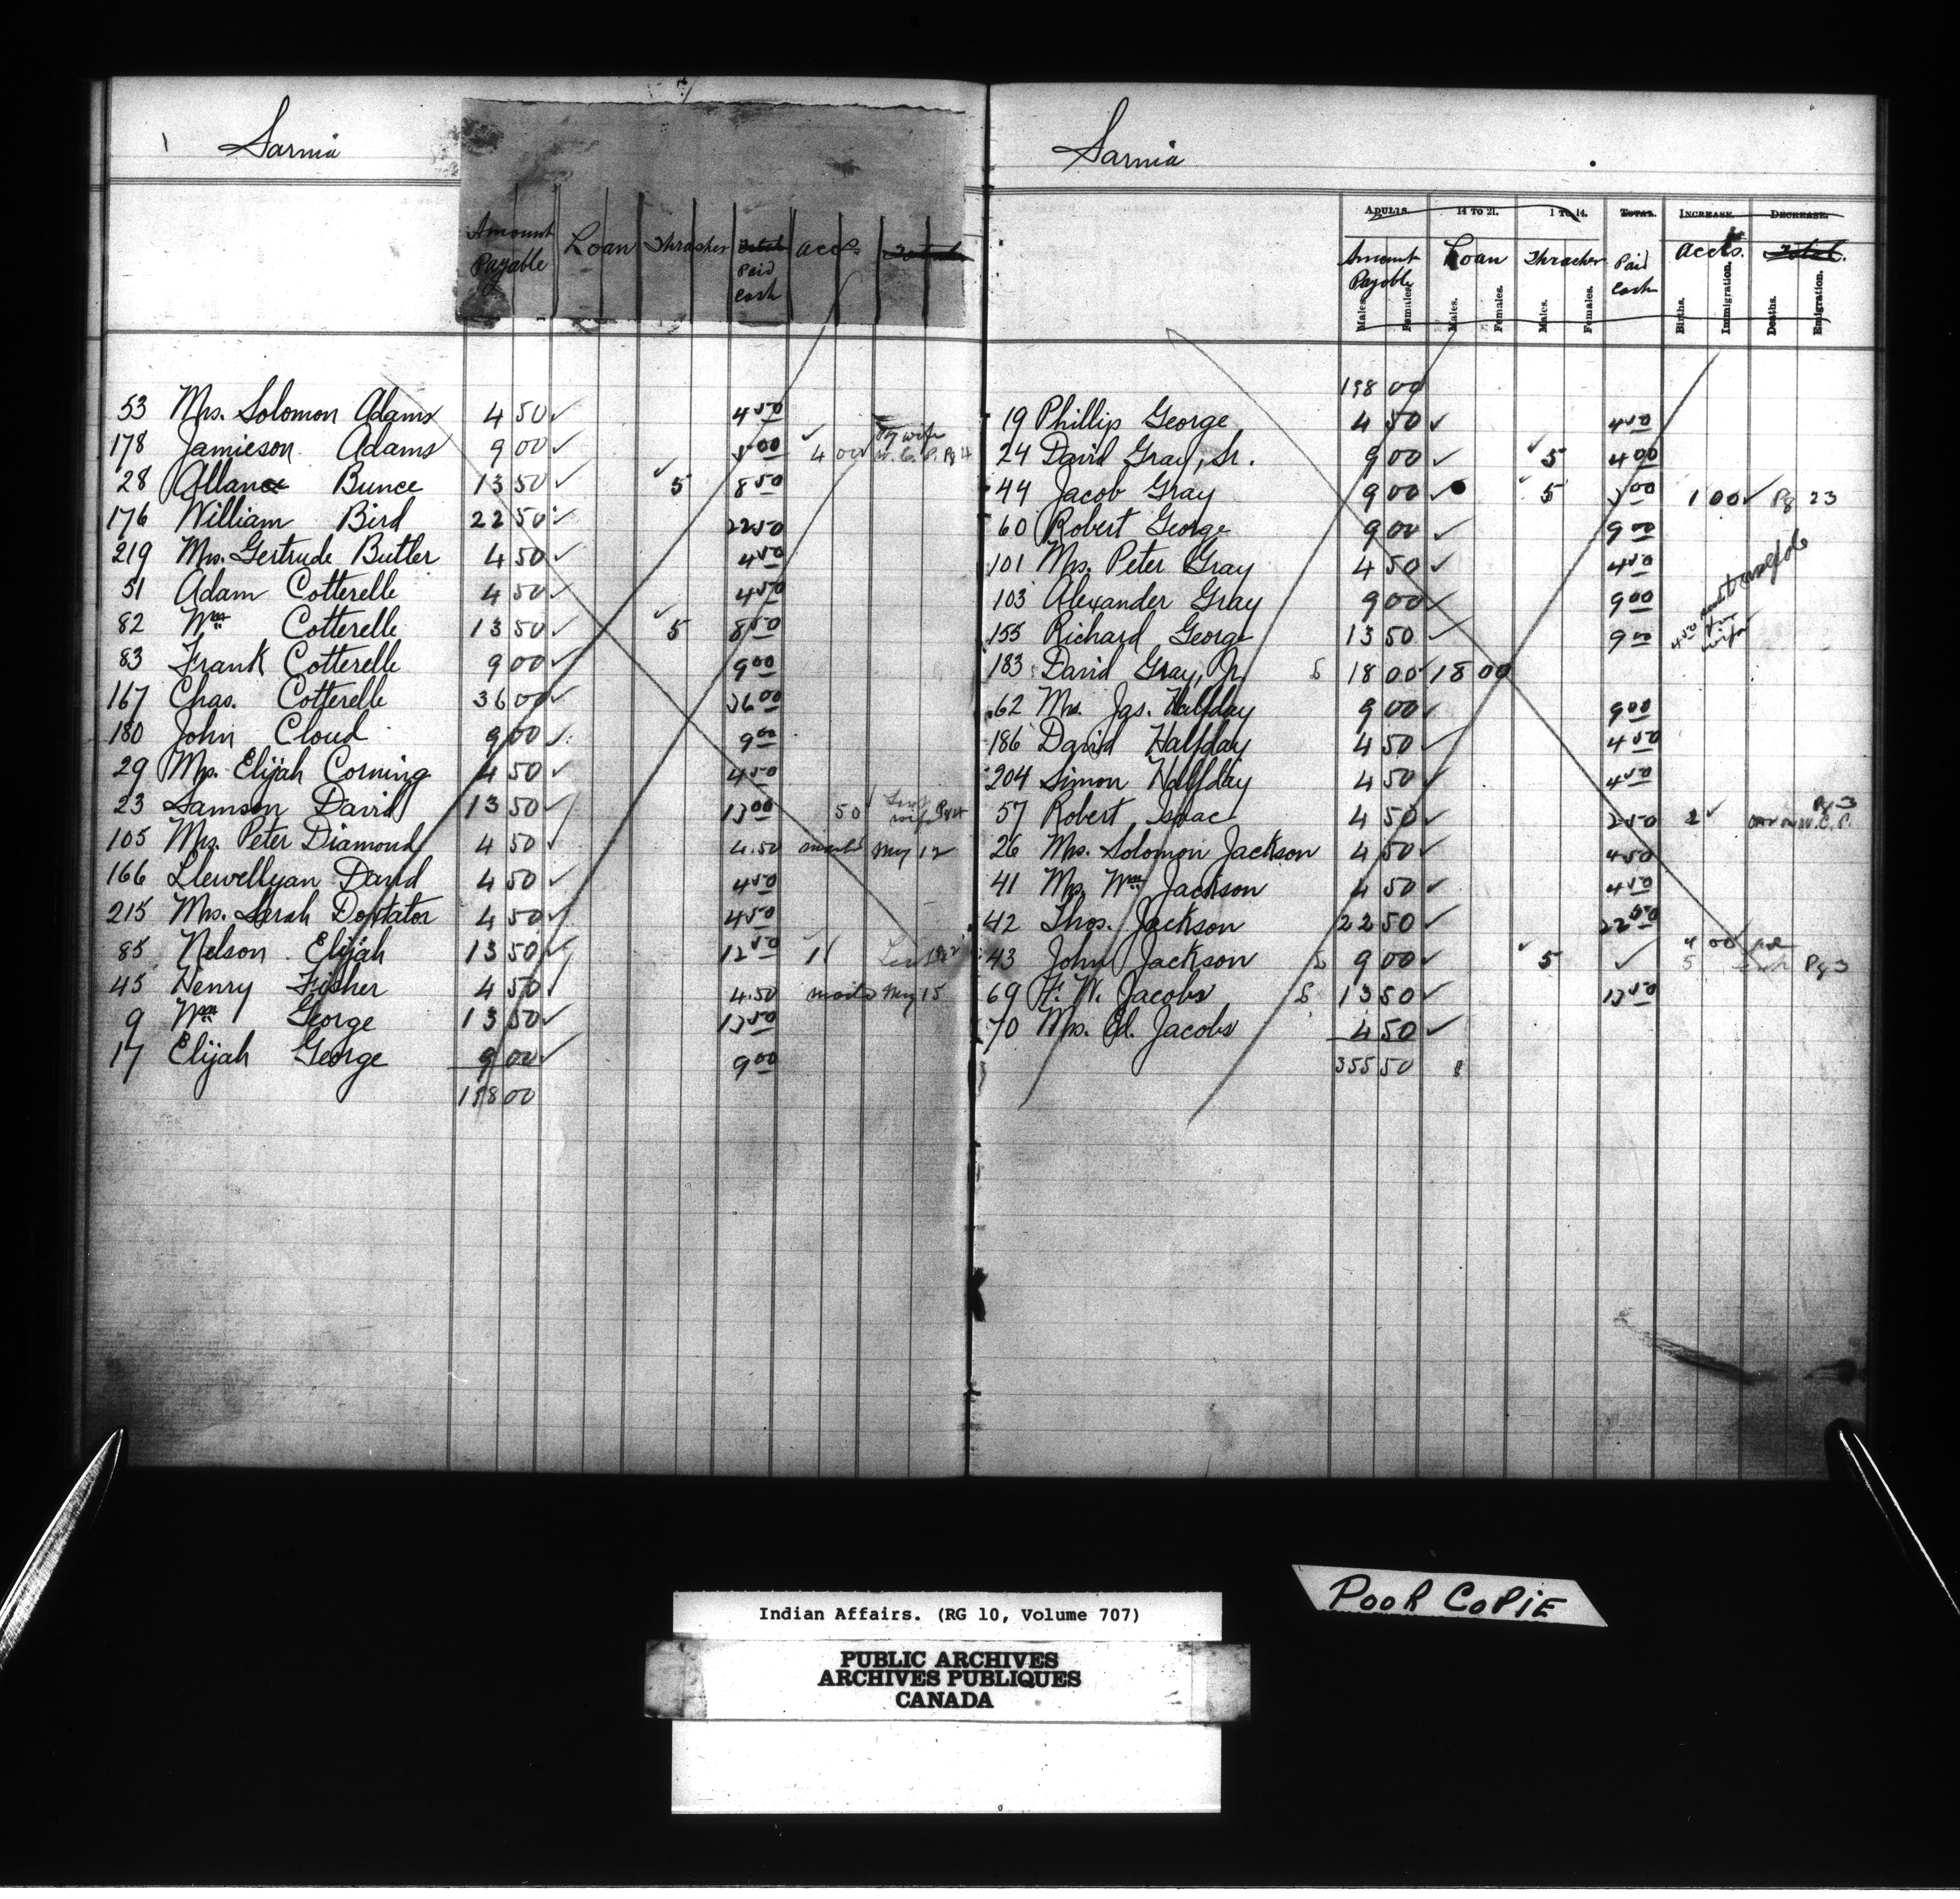 Sarnia
Amount Payable Loan Thrasher Total Paid Cash Accts. Total
53 Mrs. Solomon Adams 4 50 ✓ 4 50
178 Jamieson Adams 9 00 ✓ 5 00 ✓ 4 00 by wife W.C.P. Pg 4
28 Allan Bunce 13 50 ✓ ✓ 5 8 50
176 William Bird 22 50 ✓ 22 50
219 Mrs. Gertrude Butler 4 50 ✓ 4 50
51 Adam Cotterelle 4 50 ✓ 4 50
82 Wm Cotterelle 13 50 ✓ ✓ 5 8 50
83 Frank Cotterelle 9 00 ✓ 9 00
167 Chas. Cotterelle 36 00 ✓ 36 00
180 John Cloud 9 00 ✓ 9 00
29 Mrs. Elijah Corning 4 50 ✓ 4 50
23 Samson David 13 50 ✓ 13 00 50 ✓ wife
105 Mrs. Peter Diamond 4 50 ✓ 4.50 mailed May 12
166 Llewellyan David 4 50 ✓ 4 50
215 Mrs. Sarah Doxtator 4 50 ✓ 4 50
85 Nelson Elijah 13 50 ✓ 12 50 ✓ 1
45 Henry Fisher 4 50 ✓ 4.50 mailed May 15
9 Wm George 13 50 ✓ 13 50
17 Elijah George 9 00 ✓ 9 00
198 00
Sarnia
Adults. 14 to 21. 1 to 14. Total. Increase. Decrease.
Amount Payable Loan Thrasher Paid Cash Accts. Total.
Males. Females. Males. Females. Males. Females. Births. Immigration. Deaths. Emigration.
198 00
19 Phillip George 4 50 ✓ 4 50
24 David Gray, Sr. 9 00 ✓ ✓ 5 4 00
44 Jacob Gray 9 00 ✓ ✓ 5 3 00 1 00 ✓ Pg 23
60 Robert George 9 00 ✓ 9 00
101 Mrs. Peter Gray 4 50 ✓ 4 50
103 Alexander Gray 9 00 ✓ 9 00
155 Richard George 13 50 ✓ 9 00 4 50 for wife
183 David Gray, Jr. S 18 00 ✓ 18 00
62 Mrs. Jas. Halfday 9 00 ✓ 9 00
186 David Halfday 4 50 ✓ 4 50
204 Simon Halfday 4 50 ✓ 4 50
57 Robert Isaac 4 50 ✓ 2 50 2 ✓ W.C.P. Pg 3
26 Mrs. Solomon Jackson 4 50 ✓ 4 50
41 Mrs. Wm Jackson 4 50 ✓ 4 50
42 Thos. Jackson 22 50 ✓ 22 50
43 John Jackson S 9 00 ✓ ✓ 5 ✓ 4 00 Pg 3
69 F. W. Jacobs S 13 50 ✓ 13 50
70 Mrs. Ed. Jacobs 4 50 ✓
355 50
POOR COPIE
Indian Affairs. (RG 10, Volume 707)
PUBLIC ARCHIVES
ARCHIVES PUBLIQUES
CANADA